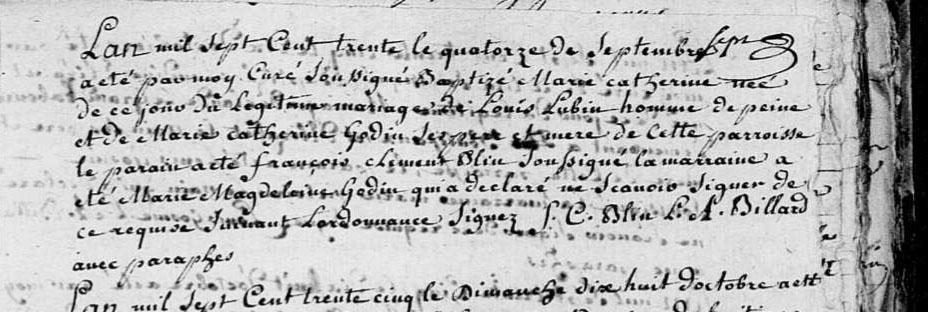 Lan mil sept Cent trente le quatorze de Septembre sept
a eté par moy Curé soussigné Baptizé Marie catherine neé
de ce jour du Legitime mariage de Louis Lubin homme de peine
et de Marie catherine Godin ses pere et mere de Cette parroisse
le parain a eté françois Climent Blin soussigné la marraine a
eté Marie Magdeleine Godin qui a declaré ne scavoir signer de
ce requise suivant Lordonnance signez f. C. Blin L. A. Billard
avec paraphes
Lan mil sept Cent trente cinq le Dimanche dix huit doctobre a etté